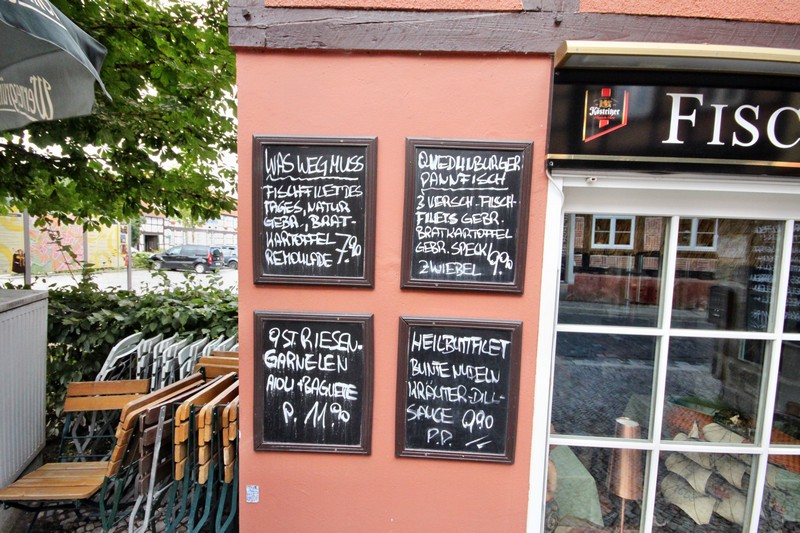 Wernegrüner
Köstritzer
FISC
WAS WEG MUSS
FISCHFILET DES
TAGES, NATUR
GEBR., BRAT-
KARTOFFEL
REMOULADE 7.90
QUEDLINBURGER
PANNFISCH
2 VERSCH. FISCH-
FILETS GEBR.
BRATKARTOFFEL
GEBR. SPECK
ZWIEBEL 9.90
9 ST RIESEN-
GARNELEN
AIOLI + BAGUETE
P. 11.90
HEILBUTTFILET
BUNTE NUDELN
KRÄUTER-DILL-
SAUCE 9,90
P.P.